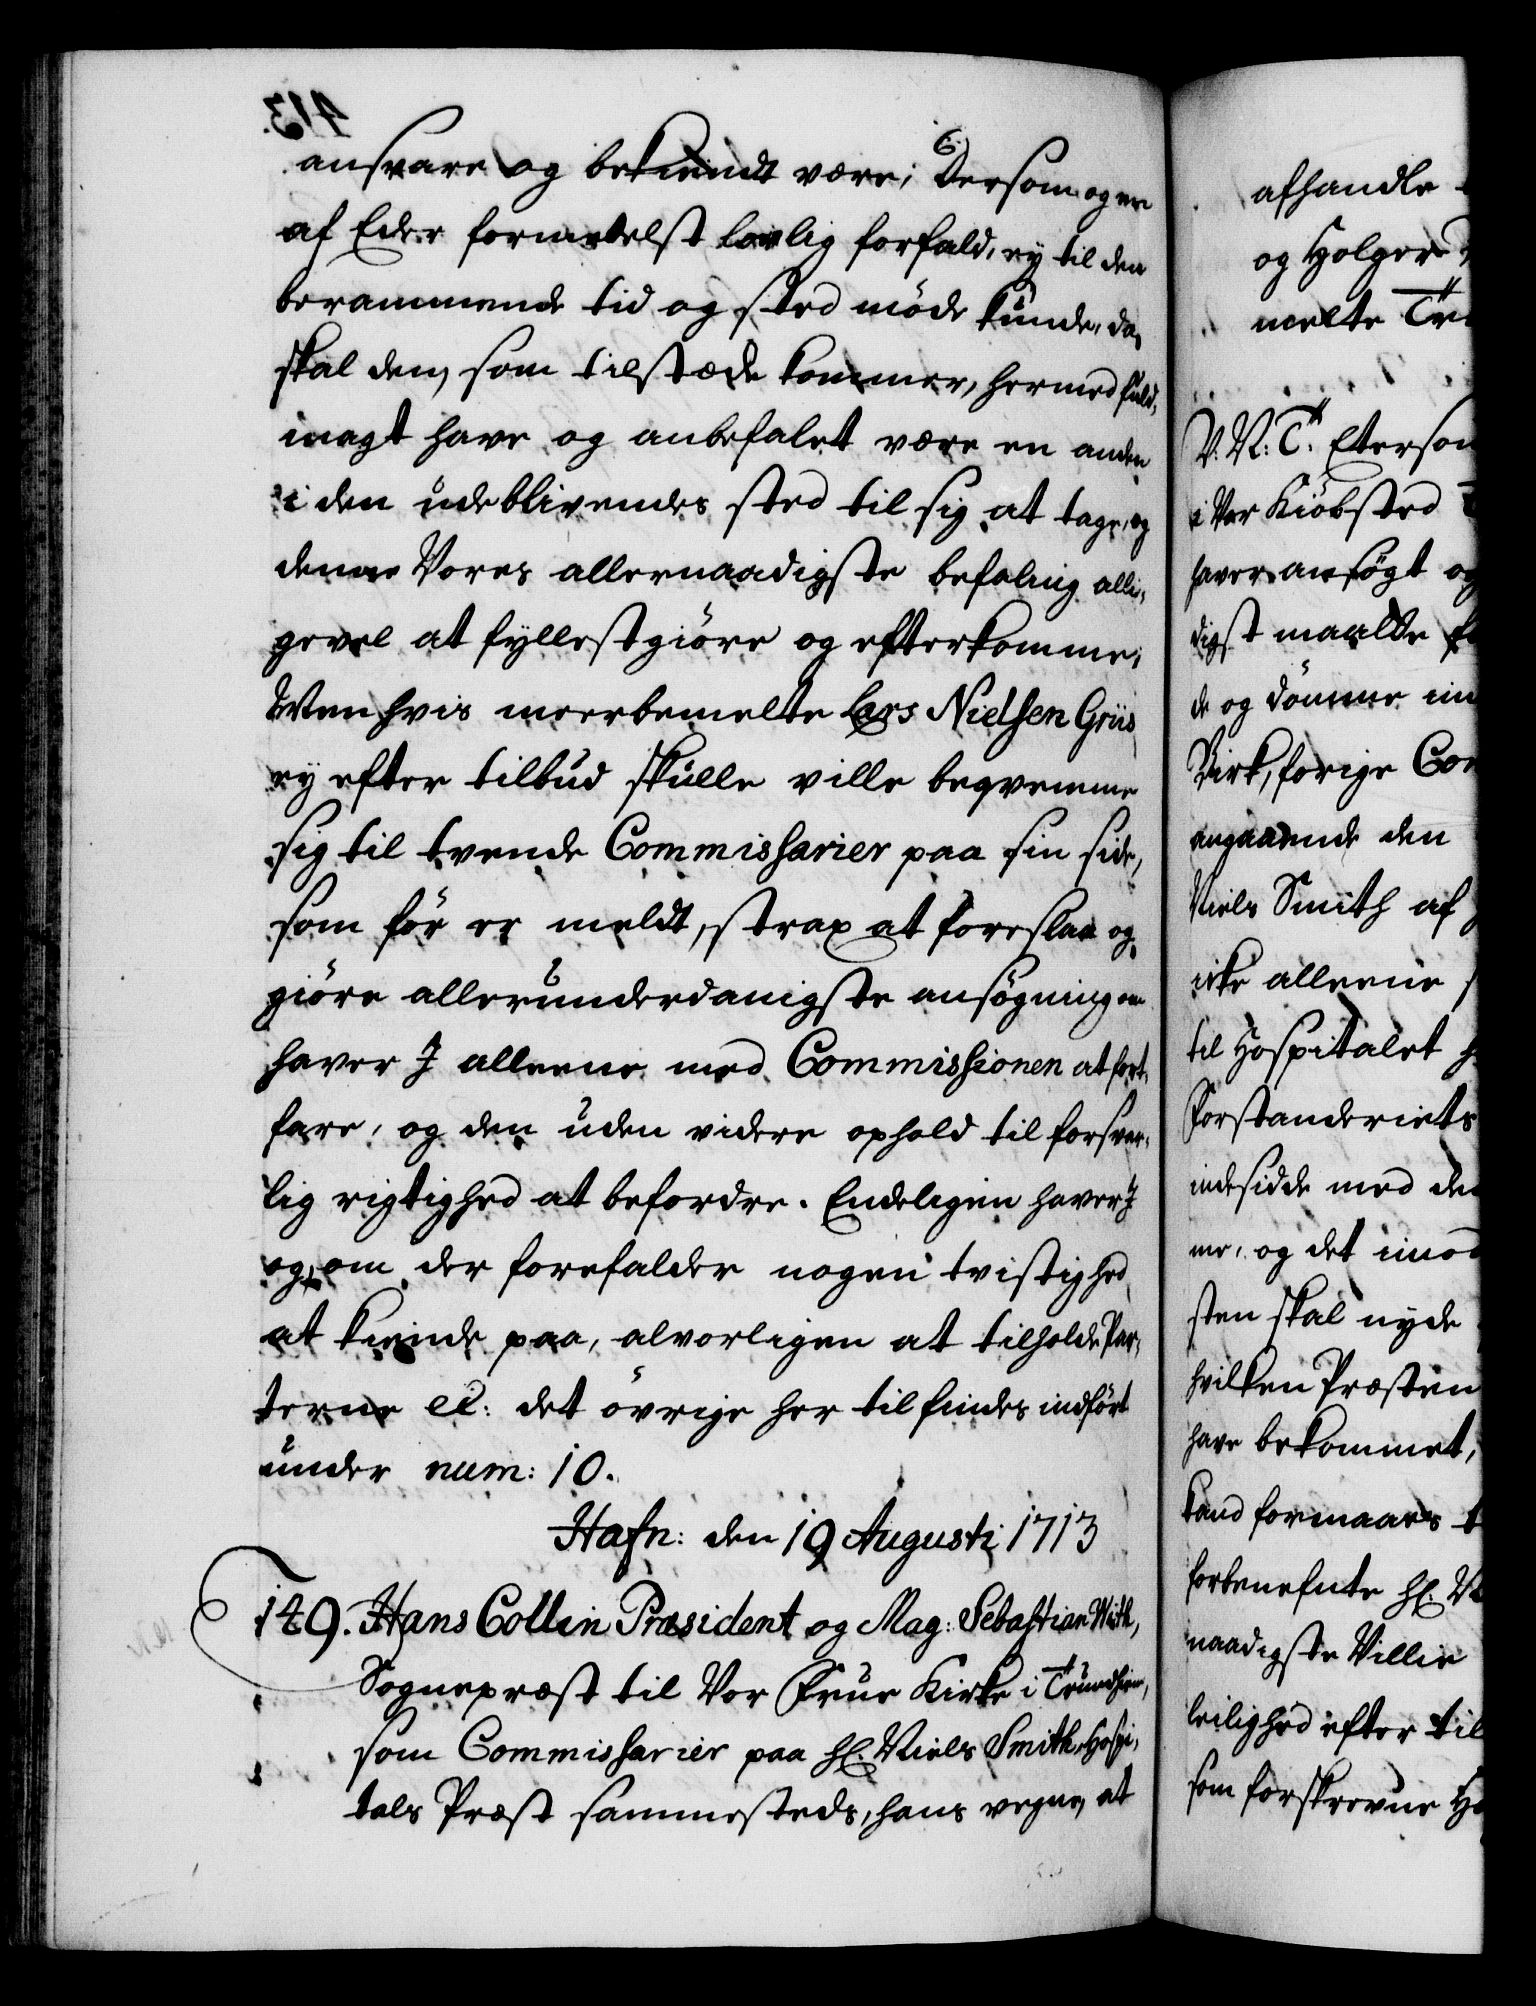 ansvare og bekiendt være; Dersom og en
af Eder formedelst lovlig forfald, ey til den
berammende tid og sted møde kunde, da
skal den, som tilstæde kommer, hermed fuld,
magt have og anbefalet være en anden
i den udeblivendes sted til sig at tage, og
denne Vores allernaadigste befaling alli,
gevel at fyllestgiøre og efterkomme;
Men hvis meerbemelte Lars Nielsen Griis
ey efter tilbud skulle ville beqvemme
sig til tvende Commissarier paa sin side,
som før er meldt, strax at foreslaa og
giøre allerunderdanigste ansøgning om
haver I alleene med Commissionen at fort,
fare, og den uden videre ophold til forsvar,
lig rigtighed at befordre. Endeligen haver I
og, om der forefalder nogen tvistighed
at kiende paa, alvorligen at tilholde Par,
terne etc: det øvrige her til findes indført
under num: 10.
Hafn: den 19 Augusti 1713
149. Hans Collin Præsident og Mag: Sebastian With,
Sognepræst til Vor Frue Kirke i Trundhiem,
som Commissarier paa Hr. Niels Smith, Hospi,
tals Præst sammesteds, hans vegne, at
afhandle
og Holger
melte
V. N: T: Eterson
i Vor Kiøbsted
haver ansøgt og
digst maatte
de og dømme im
Birk, forige Com
angaaende den
Niels Smith af
icke alleene
til Hospitalet
Forstanderiets
indesidde med den
me, og det imod
sten skal nyde
hvilken Præsten
have bekommet,
kand formaaes
forbenefnte Hr. Ni
naadigste Villie
leilighed efter til
som forskrevne Ha